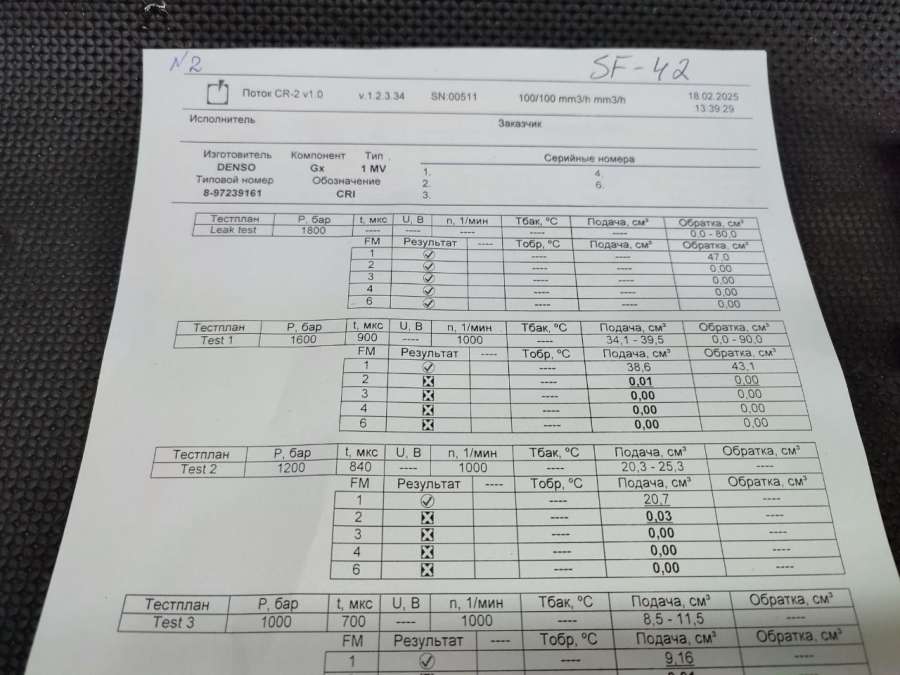 N2 SF-42
Поток CR-2 v1.0 v.1.2.3.34 SN:00511 100/100 mm3/h mm3/h 18.02.2025
13:39:29
Исполнитель Заказчик
Изготовитель Компонент Тип . Серийные номера
DENSO Gx 1 MV 1. 4.
Типовой номер Обозначение 2. 6.
8-97239161 CRI 3.
Тестплан P, бар t, мкс U, В n, 1/мин Tбак, ºC Подача, см³ Обратка, см³
Leak test 1800 ---- ---- ---- ---- ---- 0,0 - 80,0
FM Результат ---- Тобр, ºC Подача, см³ Обратка, см³
1 ---- ---- 47,0
2 ---- ---- 0,00
3 ---- ---- 0,00
4 ---- ---- 0,00
6 ---- ---- 0,00
Тестплан P, бар t, мкс U, В n, 1/мин Tбак, ºC Подача, см³ Обратка, см³
Test 1 1600 900 ---- 1000 ---- 34,1 - 39,5 0,0 - 90,0
FM Результат ---- Тобр, ºC Подача, см³ Обратка, см³
1 ---- 38,6 43,1
2 ---- 0,01 0,00
3 ---- 0,00 0,00
4 ---- 0,00 0,00
6 ---- 0,00 0,00
Тестплан P, бар t, мкс U, В n, 1/мин Tбак, ºC Подача, см³ Обратка, см³
Test 2 1200 840 ---- 1000 ---- 20,3 - 25,3 ----
FM Результат ---- Тобр, ºC Подача, см³ Обратка, см³
1 ---- 20,7 ----
2 ---- 0,03 ----
3 ---- 0,00 ----
4 ---- 0,00 ----
6 ---- 0,00 ----
Тестплан P, бар t, мкс U, В n, 1/мин Tбак, ºC Подача, см³ Обратка, см³
Test 3 1000 700 ---- 1000 ---- 8,5 - 11,5 ----
FM Результат ---- Тобр, ºC Подача, см³ Обратка, см³
1 ---- 9,16 ----